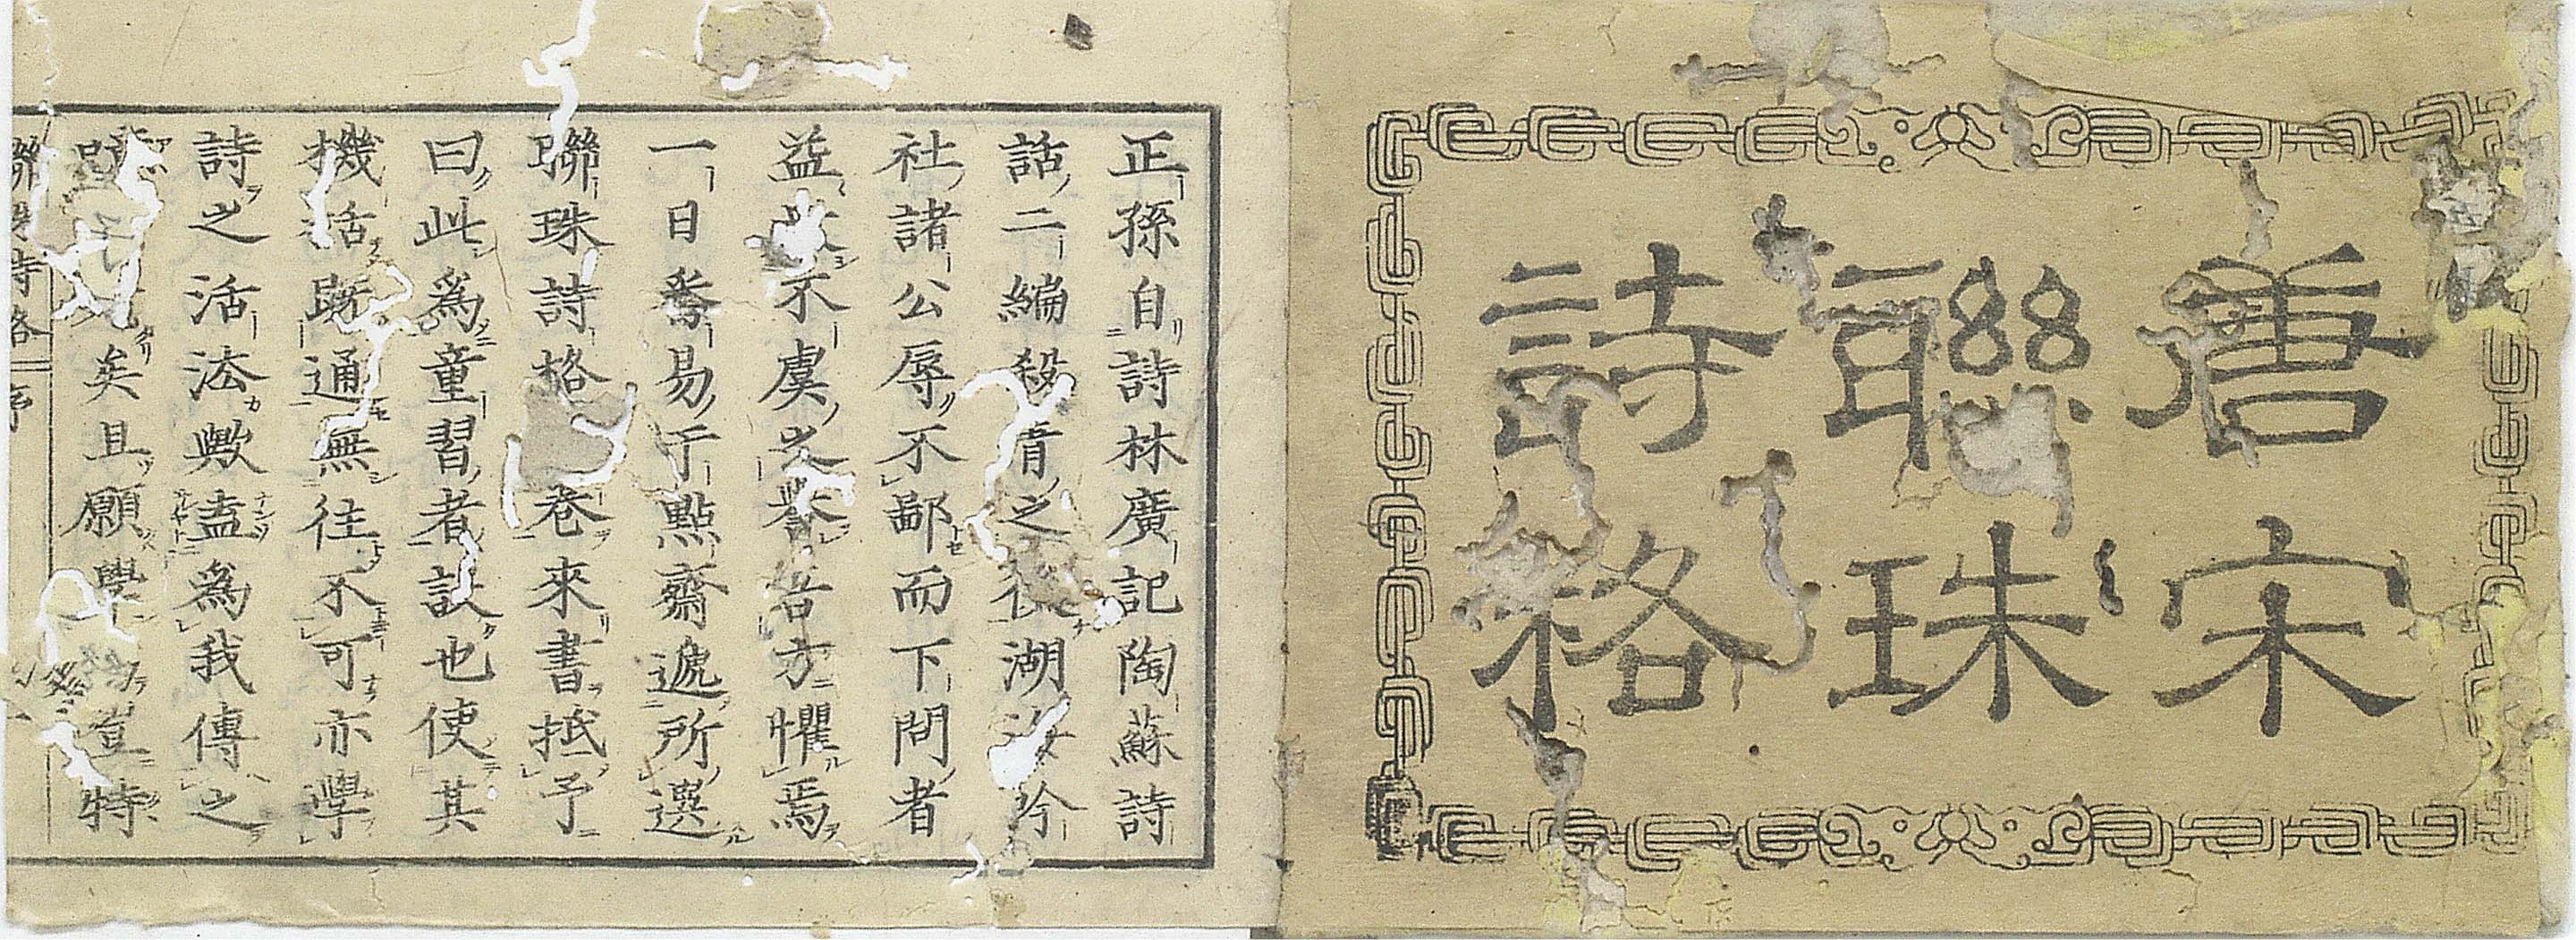 唐宋
聯珠
詩格
正孫自詩林廣記陶蘇詩
話二編殺青之後湖海吟
社諸公辱不鄙而下問者
益衆不虞之譽吾方懼焉
一日番易于默齋遞所選
聯珠詩格卷來書抵予
曰此爲童習者設也使其
機括既通無往不可亦學
詩之活法歟盍爲我傳之
矣且願學豈特
聯珠詩格序